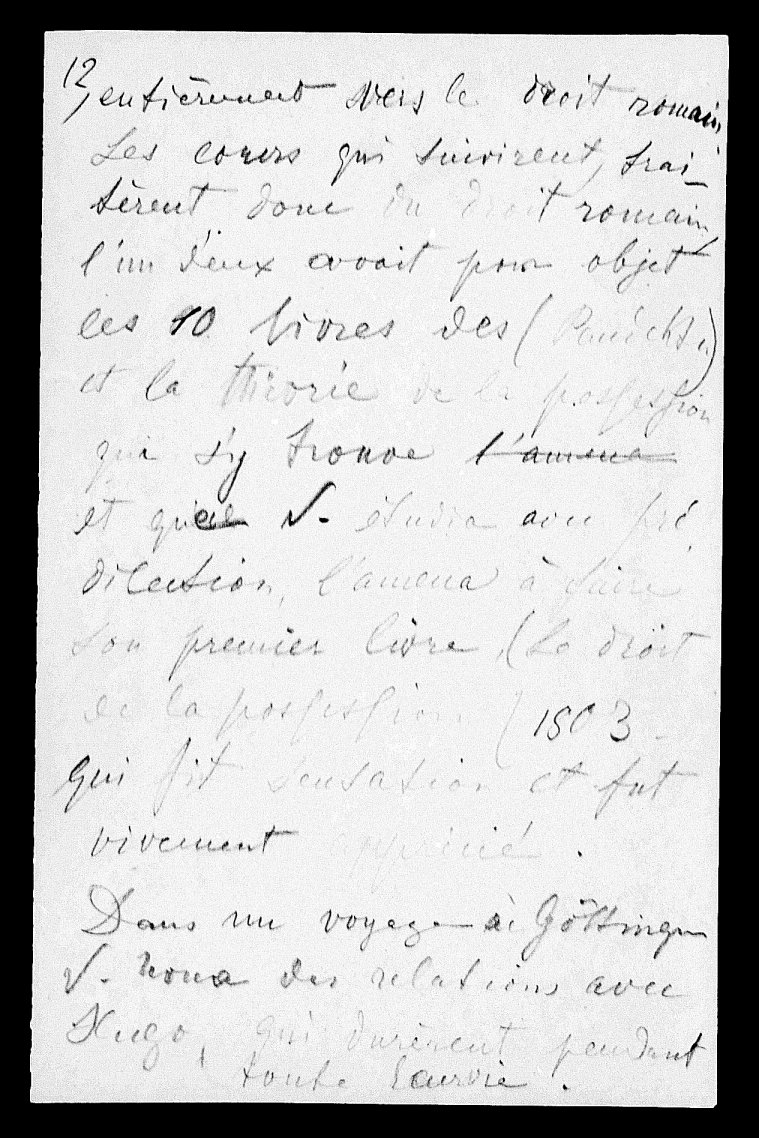 12, entièrement vers le droit romain
Les cours qui suivirent, trai-
tèrent donc du droit romain,
l'un d'eux avait pour objet
les 10 livres des (Pandectes)
et la théorie de la possession
qui s'y trouve l'amena
et que S. étudia avec pré
dilection, l'amena à faire
son premier livre, (Le droit
de la possession) 1803 -
qui fit sensation et fut
vivement apprécié.
Dans un voyage à Göttingen
S. noua des relations avec
Hugo, qui durèrent pendant
toute leur vie.